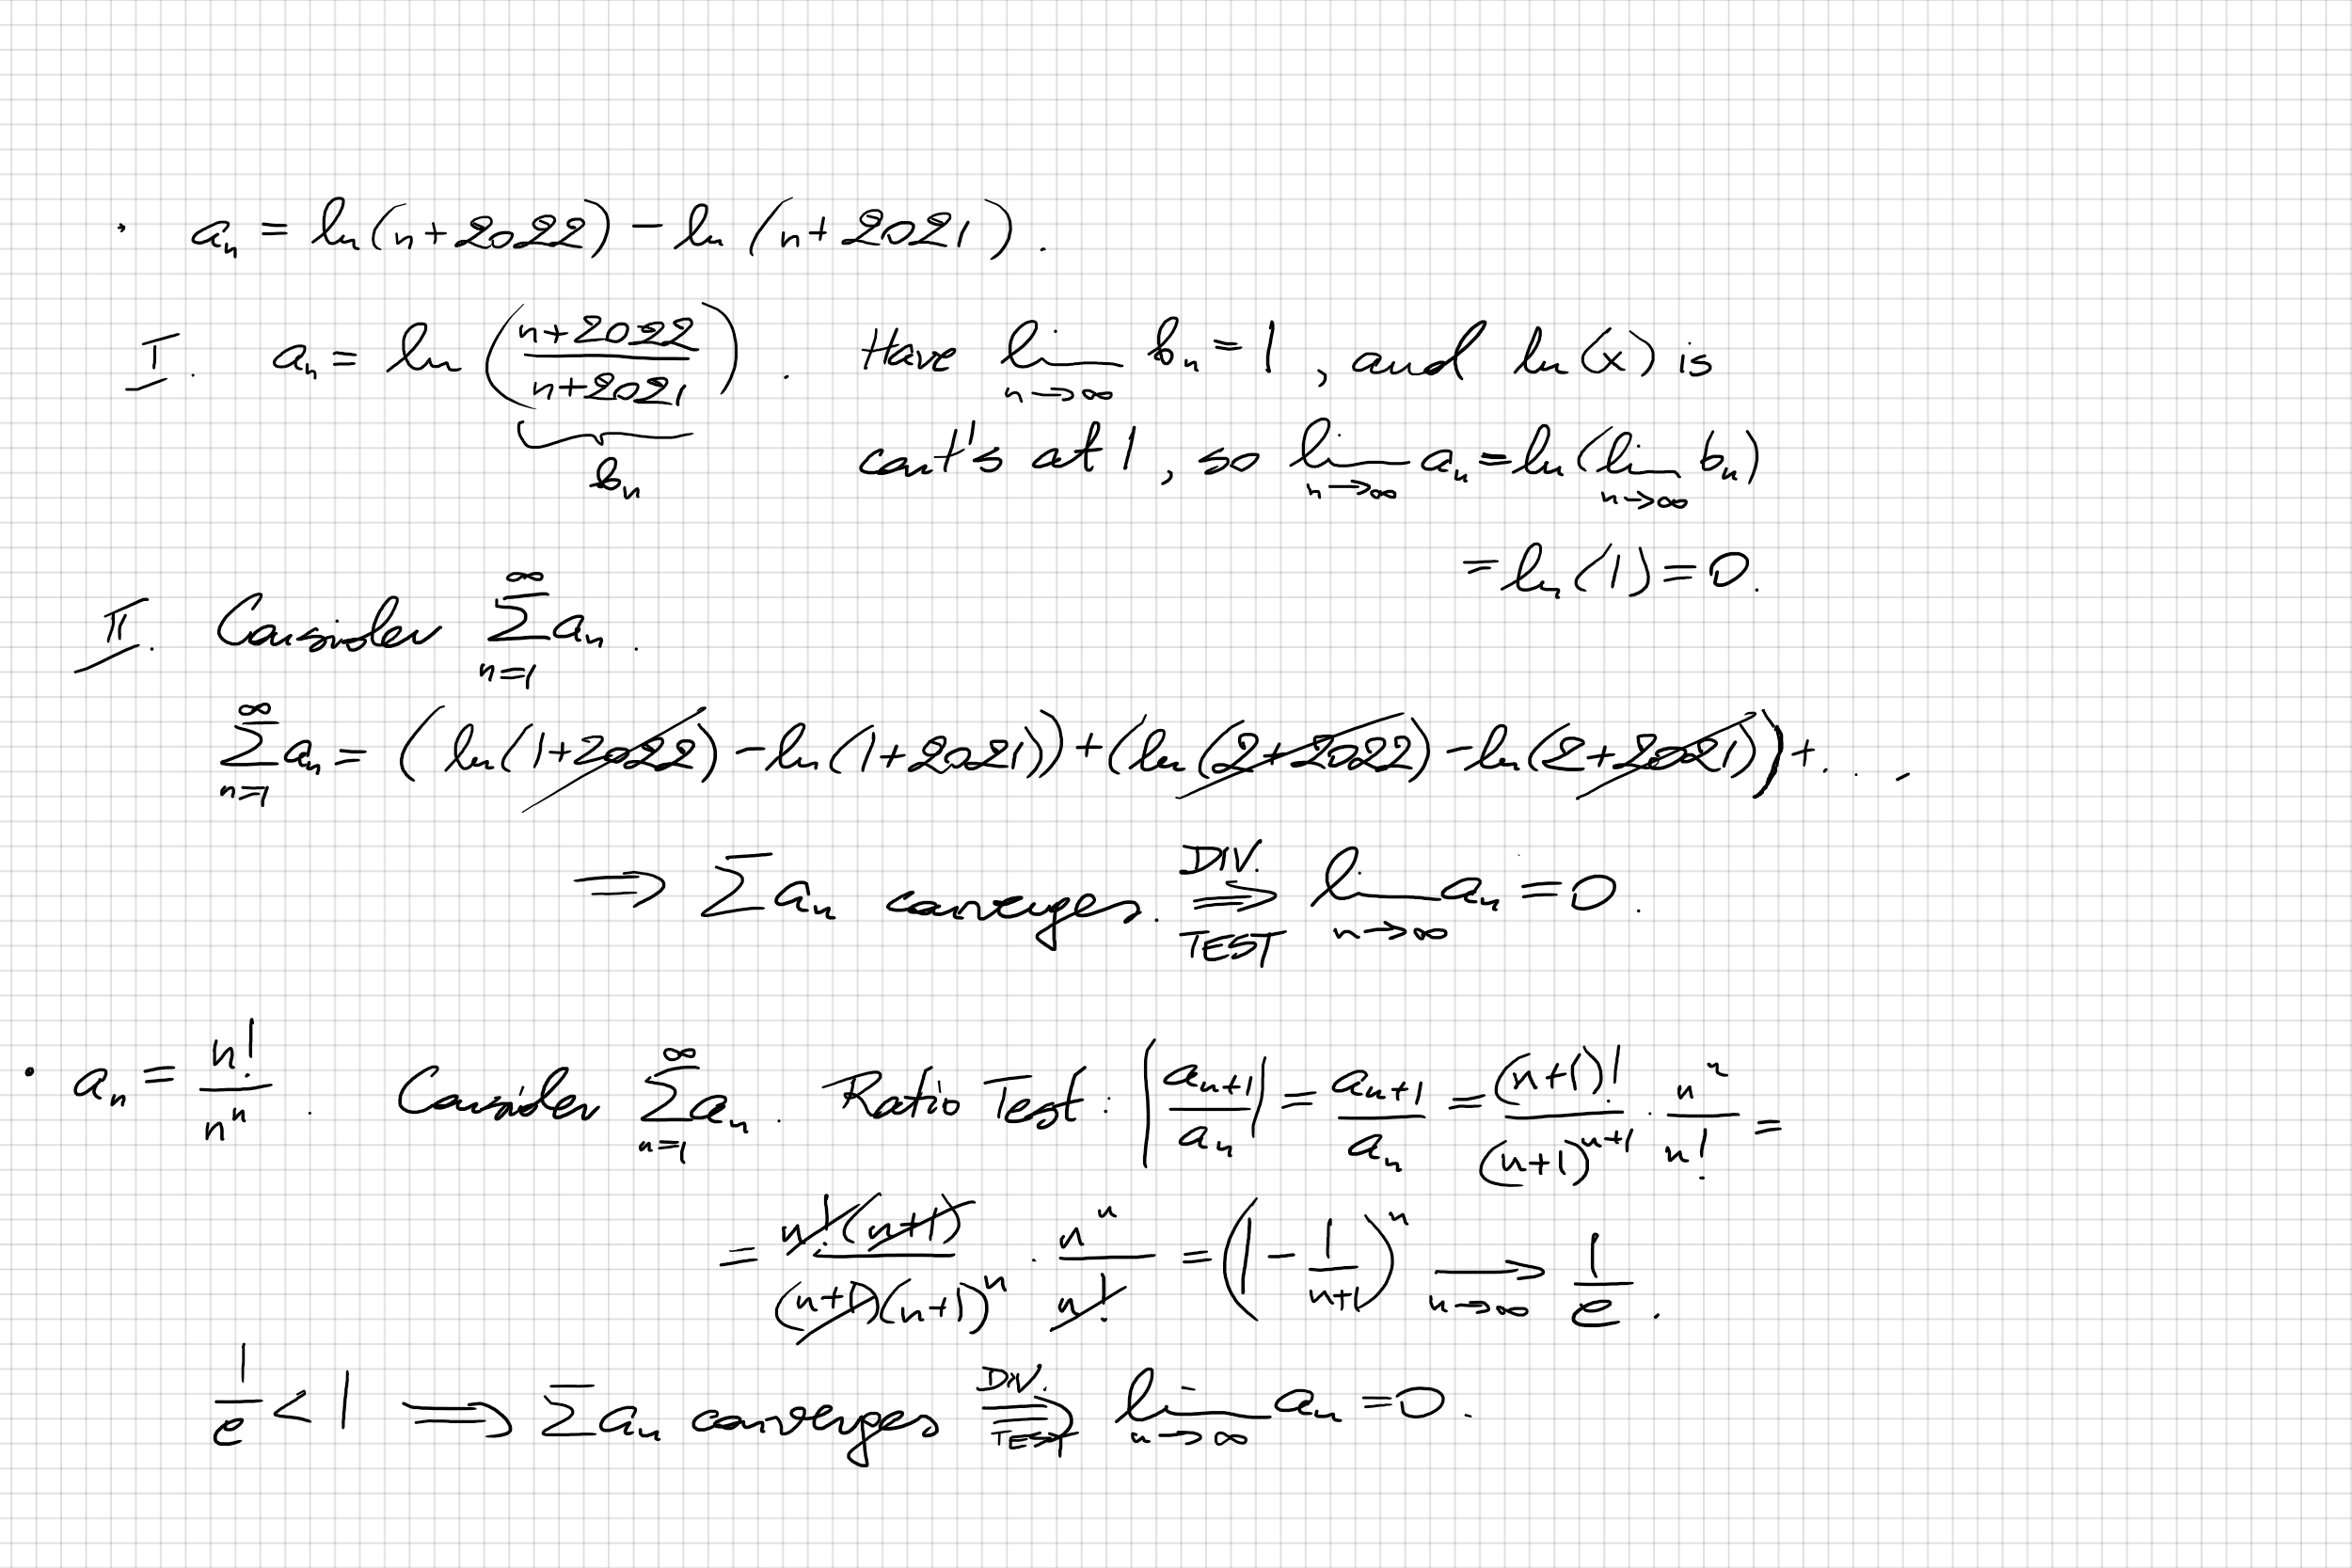 · aₙ = ln(n+2022) − ln(n+2021).
I. aₙ = ln((n+2022)/(n+2021)). Have lim_{n→∞} bₙ = 1, and ln(x) is
bₙ
cont's at 1, so lim_{n→∞} aₙ = ln(lim_{n→∞} bₙ)
= ln(1) = 0.
II. Consider ∑_{n=1}^{∞} aₙ.
∑_{n=1}^{∞} aₙ = (ln(1+2022) − ln(1+2021)) + (ln(2+2022) − ln(2+2021)) + ...
⟹ ∑aₙ converges. ⟹ (DIV. TEST) lim_{n→∞} aₙ = 0.
· aₙ = n!/nⁿ. Consider ∑_{n=1}^{∞} aₙ. Ratio Test: |aₙ₊₁/aₙ| = aₙ₊₁/aₙ = (n+1)!/(n+1)ⁿ⁺¹ · nⁿ/n! =
= n!(n+1)/((n+1)(n+1)ⁿ) · nⁿ/n! = (1 − 1/(n+1))ⁿ →_{n→∞} 1/e.
1/e < 1 ⟹ ∑aₙ converges ⟹ (DIV. TEST) lim_{n→∞} aₙ = 0.